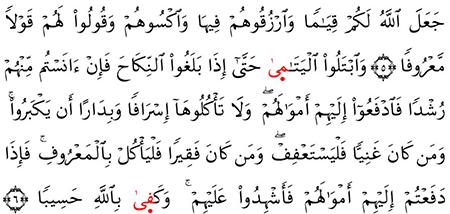 جَعَلَ ٱللَّهُ لَكُمۡ قِيَٰمٗا وَٱرۡزُقُوهُمۡ فِيهَا وَٱكۡسُوهُمۡ وَقُولُواْ لَهُمۡ قَوۡلٗا
مَّعۡرُوفٗا ٥ وَٱبۡتَلُواْ ٱلۡيَتَٰمىٰ حَتَّىٰٓ إِذَا بَلَغُواْ ٱلنِّكَاحَ فَإِنۡ ءَانَسۡتُم مِّنۡهُمۡ
رُشۡدٗا فَٱدۡفَعُوٓاْ إِلَيۡهِمۡ أَمۡوَٰلَهُمۡۖ وَلَا تَأۡكُلُوهَآ إِسۡرَافٗا وَبِدَارًا أَن يَكۡبَرُواْۚ
وَمَن كَانَ غَنِيّٗا فَلۡيَسۡتَعۡفِفۡۖ وَمَن كَانَ فَقِيرٗا فَلۡيَأۡكُلۡ بِٱلۡمَعۡرُوفِۚ فَإِذَا
دَفَعۡتُمۡ إِلَيۡهِمۡ أَمۡوَٰلَهُمۡ فَأَشۡهِدُواْ عَلَيۡهِمۡۚ وَكَفىٰ بِٱللَّهِ حَسِيبٗا ٦